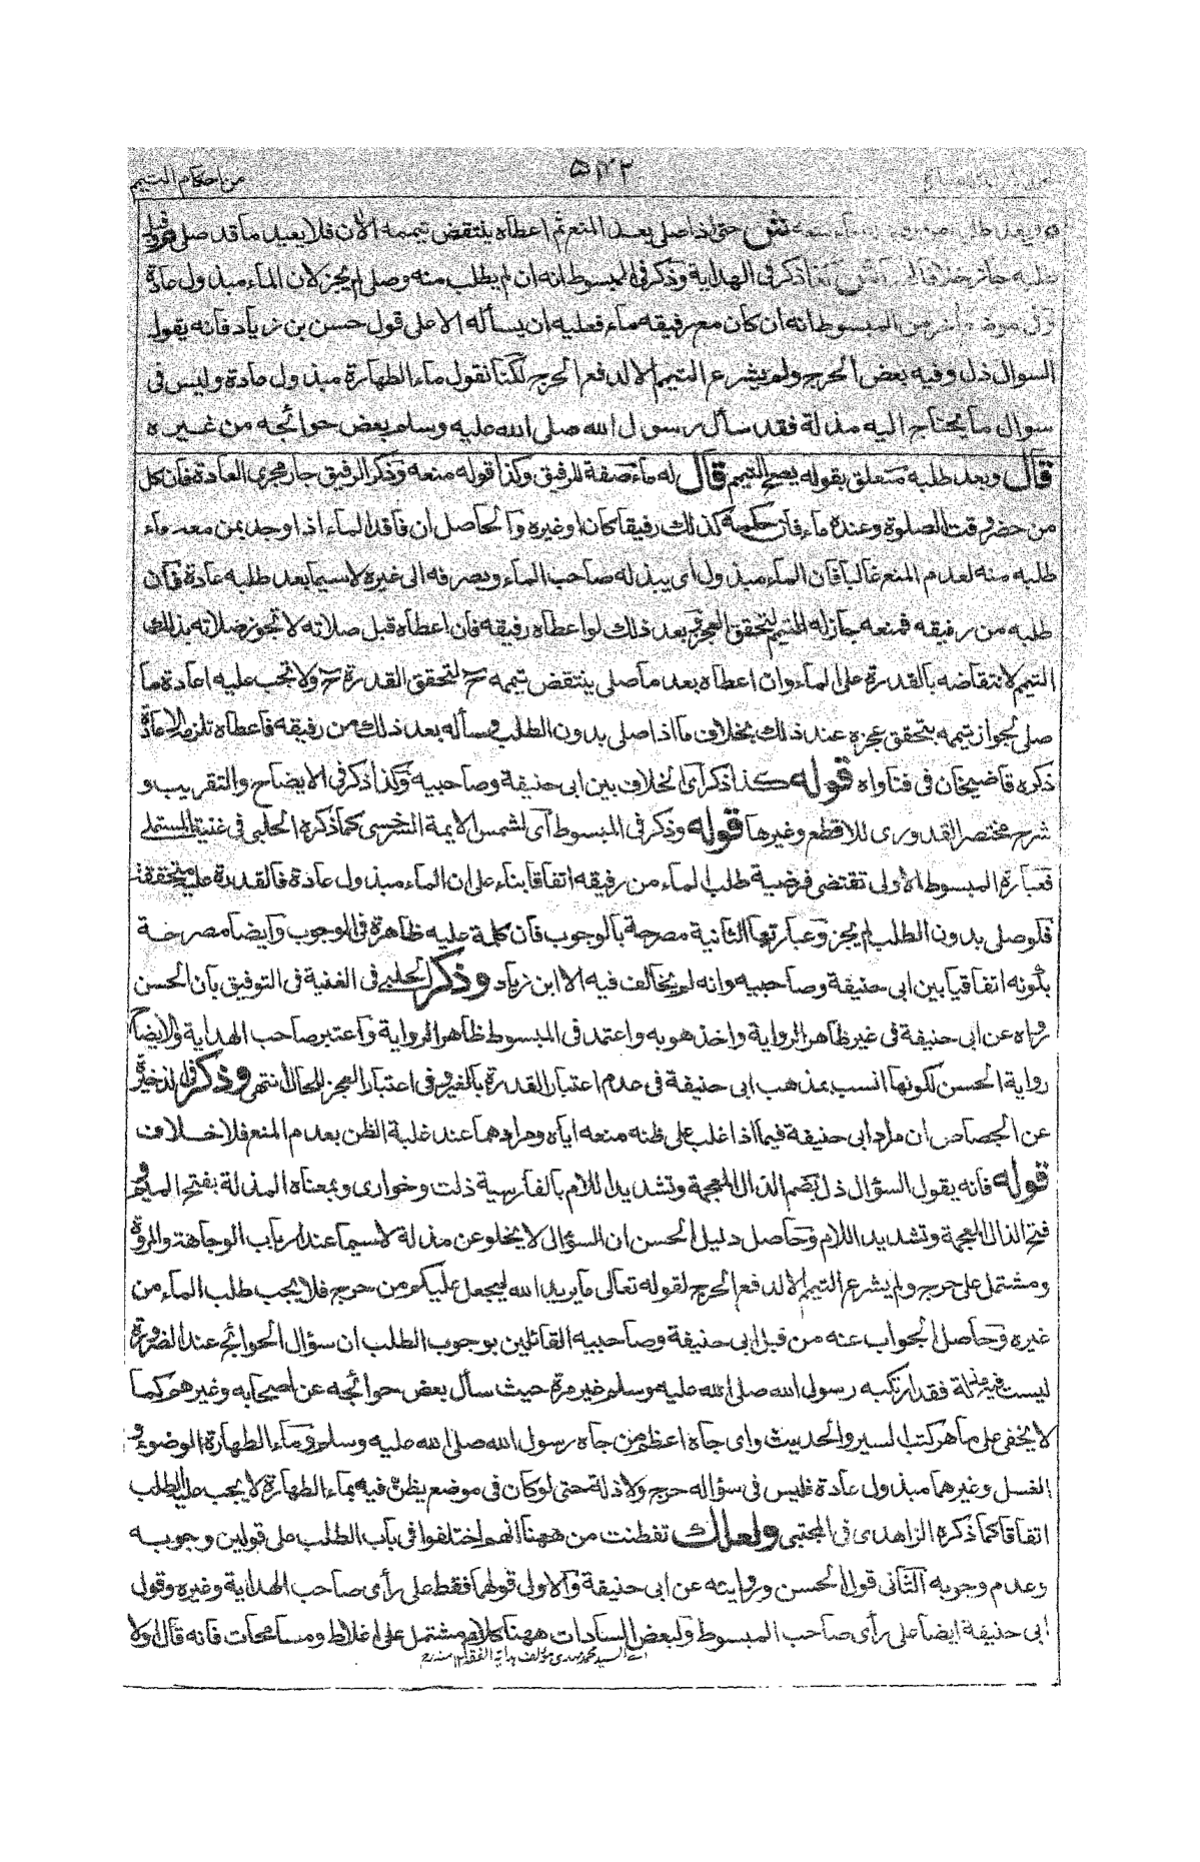 من احكام التيمم
وبعد طلبه من رفيقه له ماء منعه ش حتى اذا صلى بعد المنع ثم اعطاه ينتقض تيممه الآن فلا يعيد ما قد صلى م وقبل
طلبه جاز خلافا لهما ش هكذا ذكر فى الهداية وذكر فى المبسوط انه ان لم يطلب منه وصلى لم يجز لان الماء مبذول عادة
وفى موضع آخر من المبسوط انه ان كان مع رفيقه ماء فعليه ان يسأله الا على قول حسن بن زياد فانه يقول
السوال ذل وفيه بعض الحرج ولم يشرع التيمم الا لدفع الحرج لكنا نقول ماء الطهارة مبذول عادة وليس فى
سوال ما يحتاج اليه مذلة فقد سأل رسول الله صلى الله عليه وسلم بعض حوائجه من غيره
قال وبعد طلبه متعلق بقوله يصح التيمم قال له ماء صفة للرفيق وكذا قوله منعه وذكر الرفيق جار مجرى العادة فان كل
من حضر وقت الصلوة وعنده ماء فان حكمه كذلك رفيقا كان او غيره والحاصل ان فاقد الماء اذا وجد من معه ماء
طلبه منه لعدم المنع غالبا فان الماء مبذول اى يبذله صاحب الماء ويصرفه الى غيره لا سيما بعد طلبه عادة فان
طلبه من رفيقه فمنعه جاز له التيمم لتحقق العجز وبعد ذلك لو اعطاه رفيقه فان اعطاه قبل صلاته لا تجوز صلاته بذلك
التيمم لانتقاضه بالقدرة على الماء وان اعطاه بعد ما صلى ينتقض تيممه ح لتحقق القدرة ح ولا تجب عليه اعادة ما
صلى لجواز تيممه بتحقق عجزه عند ذلك بخلاف ما اذا صلى بدون الطلب وسأله بعد ذلك من رفيقه فاعطاه تلزمه الاعادة
ذكره قاضيخان فى فتاواه قوله كذا ذكر اى الخلاف بين ابى حنيفة وصاحبيه وكذا ذكر فى الايضاح والتقريب و
شرح مختصر القدورى للاقطع وغيرها قوله وذكر فى المبسوط اى لشمس الايمة السرخسى كما ذكره الحلبى فى غنية المستملى
فعبارة المبسوط الاولى تقتضى فرضية طلب الماء من رفيقه اتفاقا بناء على ان الماء مبذول عادة فالقدرة عليه متحققة
فلو صلى بدون الطلب لم يجز وعبارتها الثانية مصرحة بالوجوب فان كلمة عليه ظاهرة فى الوجوب وايضا مصرحة
بكونه اتفاقيا بين ابى حنيفة وصاحبيه وانه لم يخالف فيه الا ابن زياد وذكر الحلبى فى الغنية فى التوفيق بان الحسن
رواه عن ابى حنيفة فى غير ظاهر الرواية واخذ هو به واعتمد فى المبسوط ظاهر الرواية واعتبر صاحب الهداية والايضاح
رواية الحسن لكونها انسب بمذهب ابى حنيفة فى عدم اعتبار القدرة بالغير وفى اعتبار العجز للحال انتهى وذكر فى الذخيرة
عن الجصاص ان مراد ابى حنيفة فيما اذا غلب على ظنه منعه اياه ومرادهما عند غلبة الظن بعدم المنع فلا خلاف
قوله فانه يقول السؤال ذل بضم الذال المعجمة وتشديد اللام بالفارسية ذلت وخوارى وبمعناه المذلة بفتح الميم و
فتح الذال المعجمة وتشديد اللام وحاصل دليل الحسن ان السؤال لا يخلو عن مذلة لا سيما عند ارباب الوجاهة والمروة
ومشتمل على حرج ولم يشرع التيمم الا لدفع الحرج لقوله تعالى ما يريد الله ليجعل عليكم من حرج فلا يجب طلب الماء من
غيره وحاصل الجواب عنه من قبل ابى حنيفة وصاحبيه القائلين بوجوب الطلب ان سؤال الحوائج عند الضرورة
ليست فيه مذلة فقد ارتكبه رسول الله صلى الله عليه وسلم غير مرة حيث سأل بعض حوائجه عن اصحابه وغيرهم كما
لا يخفى على ماهر كتب السير والحديث واى جاه اعظم من جاه رسول الله صلى الله عليه وسلم وماء الطهارة الوضوء و
الغسل وغيرهما مبذول عادة فليس فى سؤاله حرج ولا ذلة حتى لو كان فى موضع يظن فيه بماء الطهارة لا يجب عليه الطلب
اتفاقا كما ذكره الزاهدى فى المجتبى ولعلك تفطنت من ههنا انهم اختلفوا فى باب الطلب على قولين وجوبه
وعدم وجوبه الثانى قول الحسن وروايته عن ابى حنيفة والاولى قولهما فقط على رأى صاحب الهداية وغيره وقول
ابى حنيفة ايضا على رأى صاحب المبسوط ولبعض السادات ههنا كلام مشتمل على اغلاط ومسامحات فانه قال اولا
اے السيد محمد مهدى مؤلف هداية الفقه ١٢ منه رح